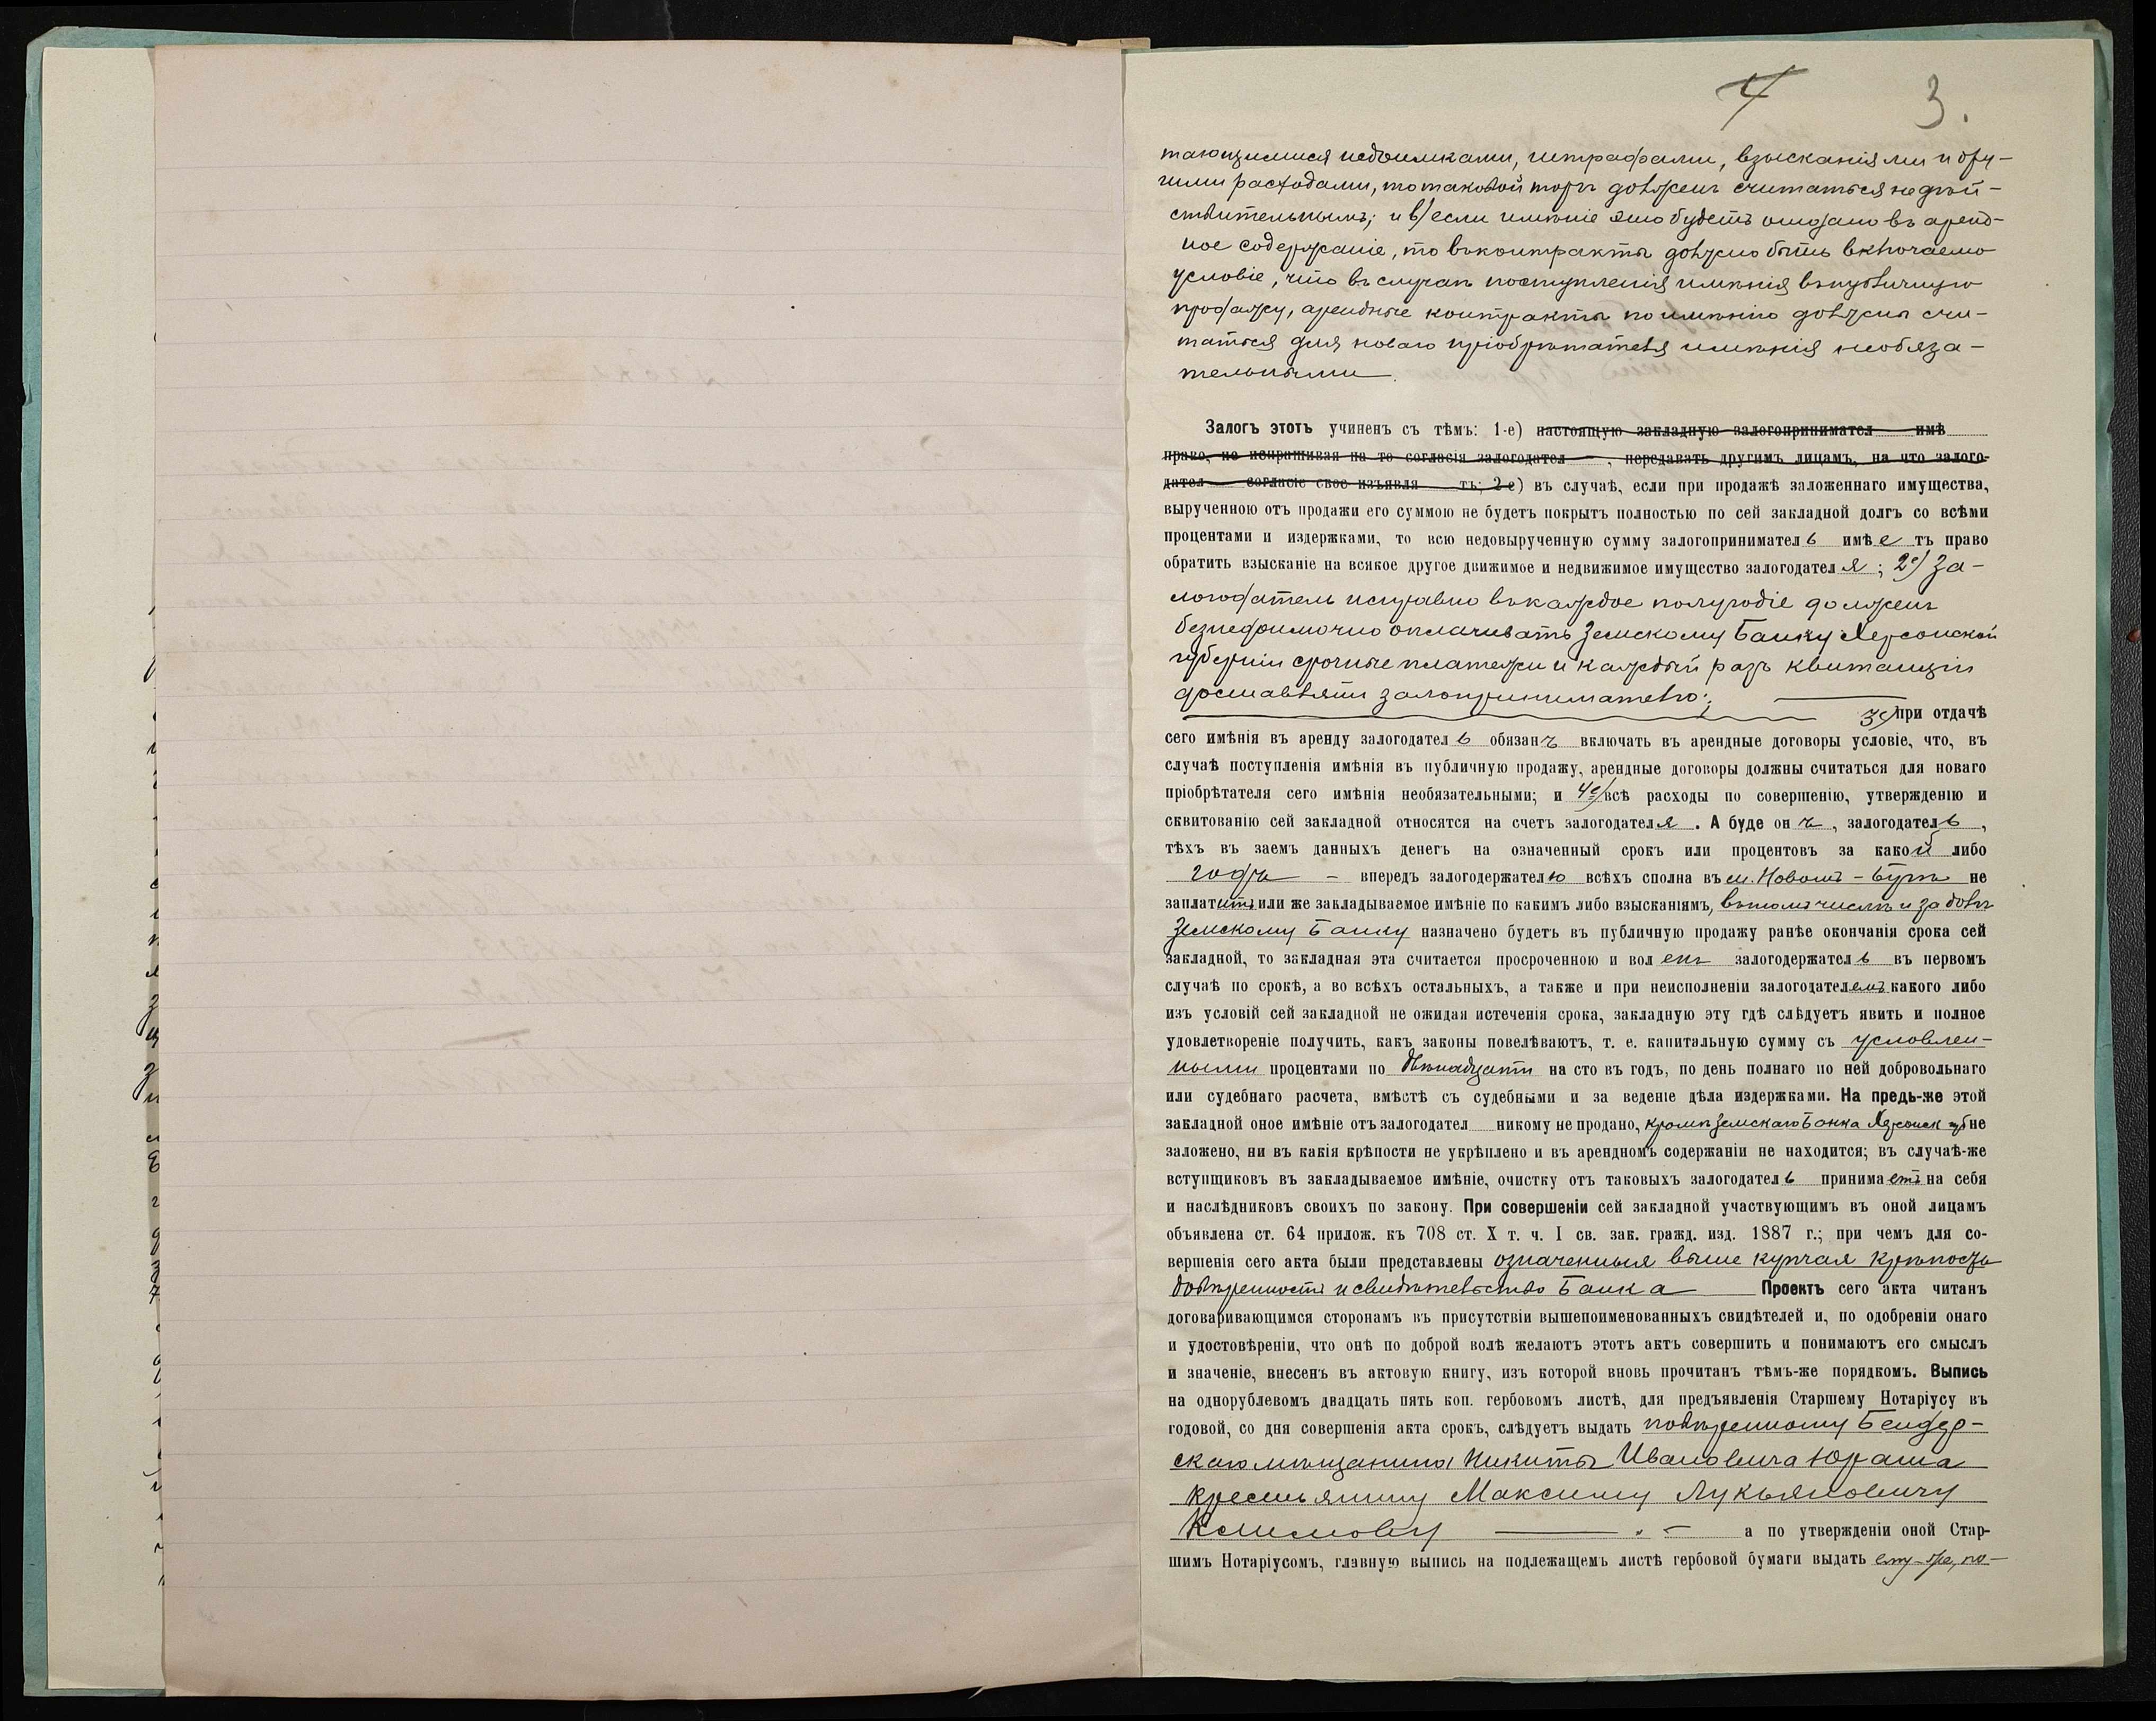 4 3.
тающимися недоимками, штрафами, взысканіями и дру-
гими расходами, то таковой торгъ долженъ считаться недѣй-
ствительнымъ; и в) если имѣніе это будетъ отдано въ аренд-
ное содержаніе, то въ контракты должно быть включаемо
условіе, что въ случаѣ поступленія имѣнія въ публичную
продажу, арендные контракты по имѣнію должны счи-
таться для новаго пріобрѣтателя имѣнія необяза-
тельными.
Залогъ этотъ учиненъ съ тѣмъ: 1-е) настоящую закладную залогопринимател имѣ
право, не испрашивая на то согласія залогодател , передавать другимъ лицамъ, на что залого-
дател согласіе свое изъявля тъ; 2-е) въ случаѣ, если при продажѣ заложеннаго имущества,
вырученною отъ продажи его суммою не будетъ покрытъ полностью по сей закладной долгъ со всѣми
процентами и издержками, то всю недовырученную сумму залогоприниматель имѣетъ право
обратить взысканіе на всякое другое движимое и недвижимое имущество залогодателя; 2е) За-
логодатель исправно въ каждое полугодіе долженъ
безнедоимочно оплачивать Земскому Банку Херсонской
губерніи срочные платежи и каждый разъ квитанціи
доставлять залопринимателю;
3е) при отдачѣ
сего имѣнія въ аренду залогодатель обязанъ включать въ арендные договоры условіе, что, въ
случаѣ поступленія имѣнія въ публичную продажу, арендные договоры должны считаться для новаго
пріобрѣтателя сего имѣнія необязательными; и 4е) всѣ расходы по совершенію, утвержденію и
сквитованію сей закладной относятся на счетъ залогодателя. А буде онъ, залогодатель,
тѣхъ въ заемъ данныхъ денегъ на означенный срокъ или процентовъ за какой либо
годъ – впередъ залогодержателю всѣхъ сполна въ м. Новомъ-Бугѣ не
заплатитъ или же закладываемое имѣніе по какимъ либо взысканіямъ, въ томъ числѣ и за долгъ
Земскому Банку назначено будетъ въ публичную продажу ранѣе окончанія срока сей
закладной, то закладная эта считается просроченною и воленъ залогодержатель въ первомъ
случаѣ по срокѣ, а во всѣхъ остальныхъ, а также и при неисполненіи залогодателемъ какого либо
изъ условій сей закладной не ожидая истеченія срока, закладную эту гдѣ слѣдуетъ явить и полное
удовлетвореніе получить, какъ законы повелѣваютъ, т. е. капитальную сумму съ условлен-
ными процентами по двѣнадцати на сто въ годъ, по день полнаго по ней добровольнаго
или судебнаго расчета, вмѣстѣ съ судебными и за веденіе дѣла издержками. На предь-же этой
закладной оное имѣніе отъ залогодател никому не продано, кромѣ Земскаго Банка Херсонск губ не
заложено, ни въ какія крѣпости не укрѣплено и въ арендномъ содержаніи не находится; въ случаѣ-же
вступщиковъ въ закладываемое имѣніе, очистку отъ таковыхъ залогодатель принимаетъ на себя
и наслѣдниковъ своихъ по закону. При совершеніи сей закладной участвующимъ въ оной лицамъ
объявлена ст. 64 прилож. къ 708 ст. X т. ч. I св. зак. гражд. изд. 1887 г.; при чемъ для со-
вершенія сего акта были представлены означенныя выше купчая крѣпость
довѣренность и свидѣтельство Банка Проектъ сего акта читанъ
договаривающимся сторонамъ въ присутствіи вышепоименованныхъ свидѣтелей и, по одобреніи онаго
и удостовѣреніи, что онѣ по доброй волѣ желаютъ этотъ актъ совершить и понимаютъ его смыслъ
и значеніе, внесенъ въ актовую книгу, изъ которой вновь прочитанъ тѣмъ-же порядкомъ. Выпись
на однорублевомъ двадцать пять коп. гербовомъ листѣ, для предъявленія Старшему Нотаріусу въ
годовой, со дня совершенія акта срокъ, слѣдуетъ выдать повѣренному Бендер-
скаго мѣщанина Никиты Ивановича Юраша
крестьянину Максиму Лукьяновичу
Климову а по утвержденіи оной Стар-
шимъ Нотаріусомъ, главную выпись на подлежащемъ листѣ гербовой бумаги выдать ему-же, по-